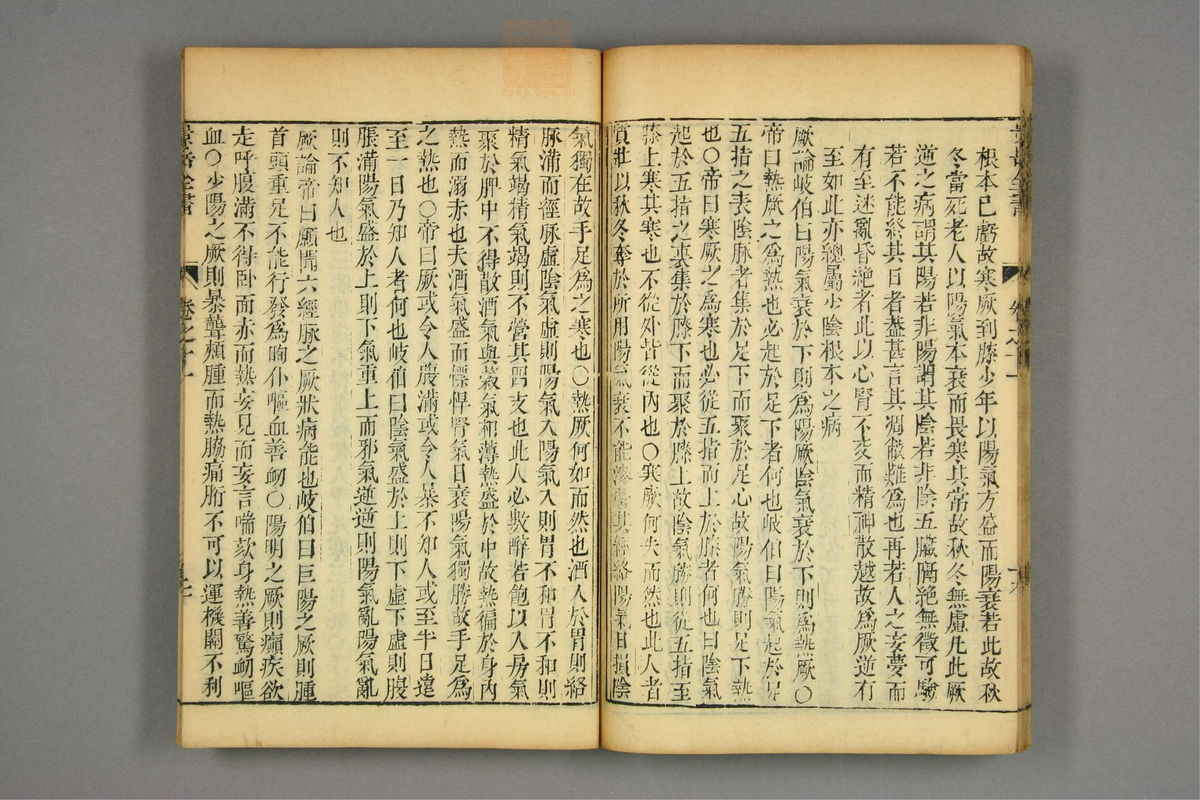 根本已虧故寒厥到膝少年以陽氣方盛而陽衰若此故秋
冬當死老人以陽氣本衰而畏寒其常故秋冬無慮凡此厥
逆之病謂其陽若非陽謂其陰若非陰五臟隔絕無徵可驗
若不能終其日者蓋甚言其凋敝難為也再若人之妄夢而
有至迷亂昏絕者此以心腎不交而精神散越故為厥逆有
至如此亦總屬少陰根本之病
厥論岐伯曰陽氣衰於下則為寒厥陰氣衰於下則為熱厥〇
帝曰熱厥之為熱也必起於足下者何也岐伯曰陽氣起於足
五指之表陰脉者集於足下而聚於足心故陽氣勝則足下熱
也〇帝曰寒厥之為寒也必從五指而上於膝者何也曰陰氣
起於五指之裏集於膝下而聚於膝上故陰氣勝則從五指至
膝上寒其寒也不從外皆從內也〇寒厥何失而然也此人者
質壯以秋冬奪於所用陽氣衰不能滲營其經絡陽氣日損陰
氣獨在故手足為之寒也〇熱厥何如而然也酒入於胃則絡
脉滿而經脉虛陰氣虛則陽氣入陽氣入則胃不和胃不和則
精氣竭精氣竭則不營其四支也此人必數醉若飽以入房氣
聚於脾中不得散酒氣與穀氣相薄熱盛於中故熱徧於身內
熱而溺赤也夫酒氣盛而慓悍腎氣日衰陽氣獨勝故手足為
之熱也〇帝曰厥或令人腹滿或令人暴不知人或至半日遠
至一日乃知人者何也岐伯曰陰氣盛於上則下虛下虛則腹
脹滿陽氣盛於上則下氣重上而邪氣逆逆則陽氣亂陽氣亂
則不知人也
厥論帝曰願聞六經脉之厥狀病能也岐伯曰巨陽之厥則腫
首頭重足不能行發為眴仆嘔血善衂〇陽明之厥則癲疾欲
走呼腹滿不得臥面赤而熱妄見而妄言喘欬身熱善驚衂嘔
血〇少陽之厥則暴聾頰腫而熱脇痛䯒不可以運機關不利